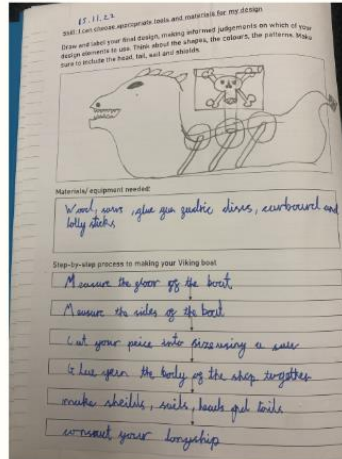 15.11.22
Skill: I can choose appropriate tools and materials for my design
Draw and label your final design, making informed judgements on which of your
design elements to use. Think about the shapes, the colours, the patterns. Make
sure to include the head, tail, sail and shields.
Materials/ equipment needed:
Wood, saws, glue gun, discs, carboard and
lolly sticks
Step-by-step process to making your Viking boat
Measure the floor of the boat
Measure the sides of the boat
Cut your peice into size using a saw
Glue the body of the ship together
make sheilds, sails, heads tails
your longship